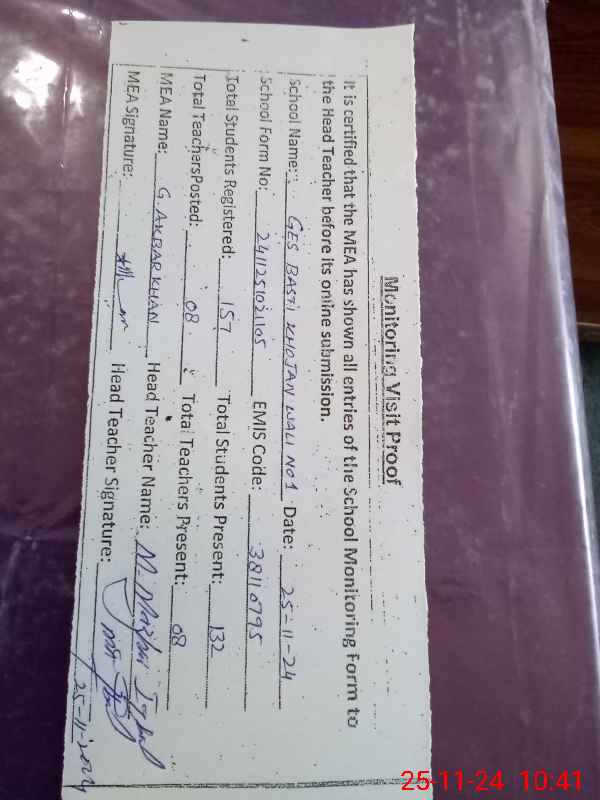 Monitoring Visit Proof
It is certified that the MEA has shown all entries of the School Monitoring Form to
the Head Teacher before its online submission.
School Name: GES BASTI KHOJAN WALI NO1 Date: 25-11-24
School Form No: 2411251021105 EMIS Code: 38110795
Total Students Registered: 157 Total Students Present: 132
Total TeachersPosted: 08 Total Teachers Present: 08
MEA Name: G. AKBAR KHAN Head Teacher Name: M. Iqbal
MEA Signature: Head Teacher Signature:
25-11-2024
25-11-24 10:41